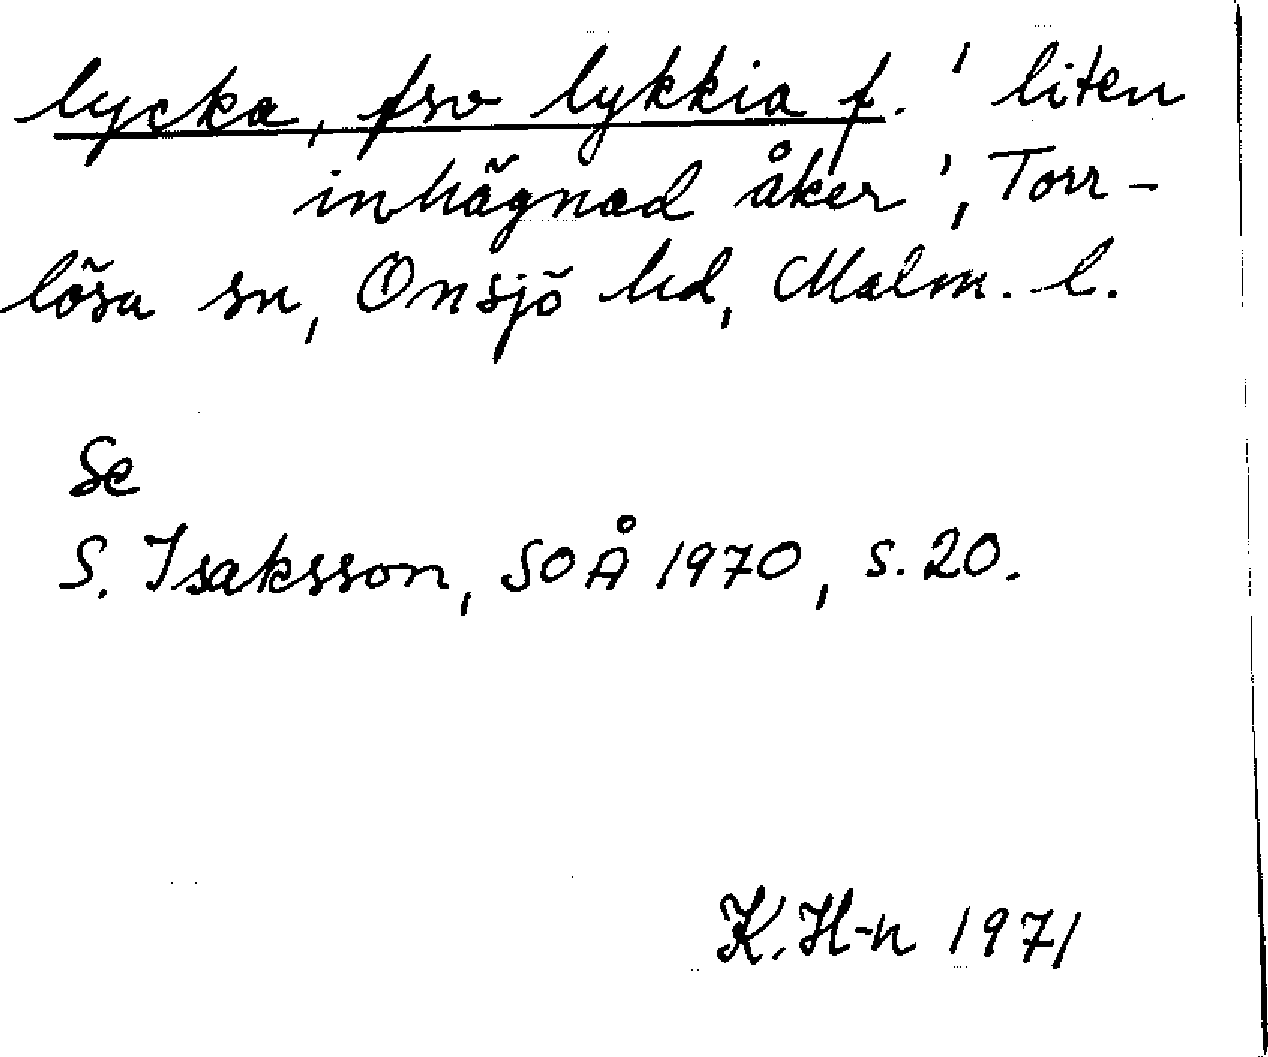 lycka, fsv lykkia f. 'liten
inhägnad åker', Torr-
lösa sn, Onsjö hd, Malm. l.
Se
S. Isaksson, SOÅ 1970, s. 20.
K. H-n 1971